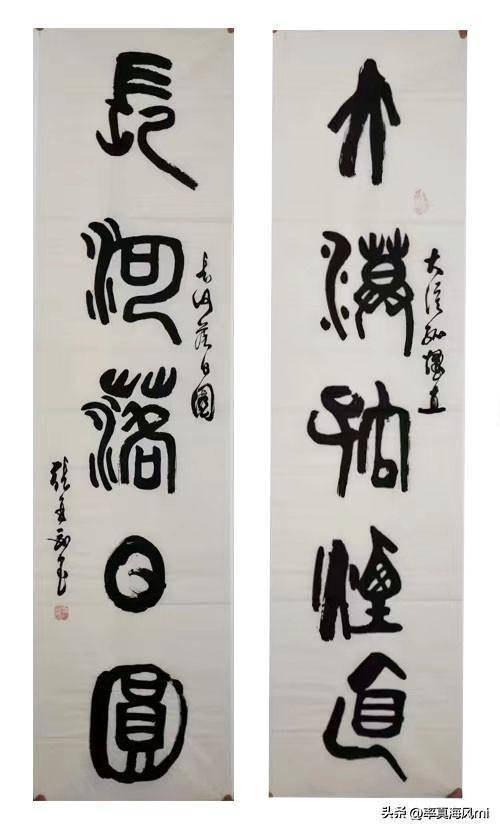 大漠孤煙直
大漠孤煙直
長河落日圓
长河落日圓
头条 @率真海风mi